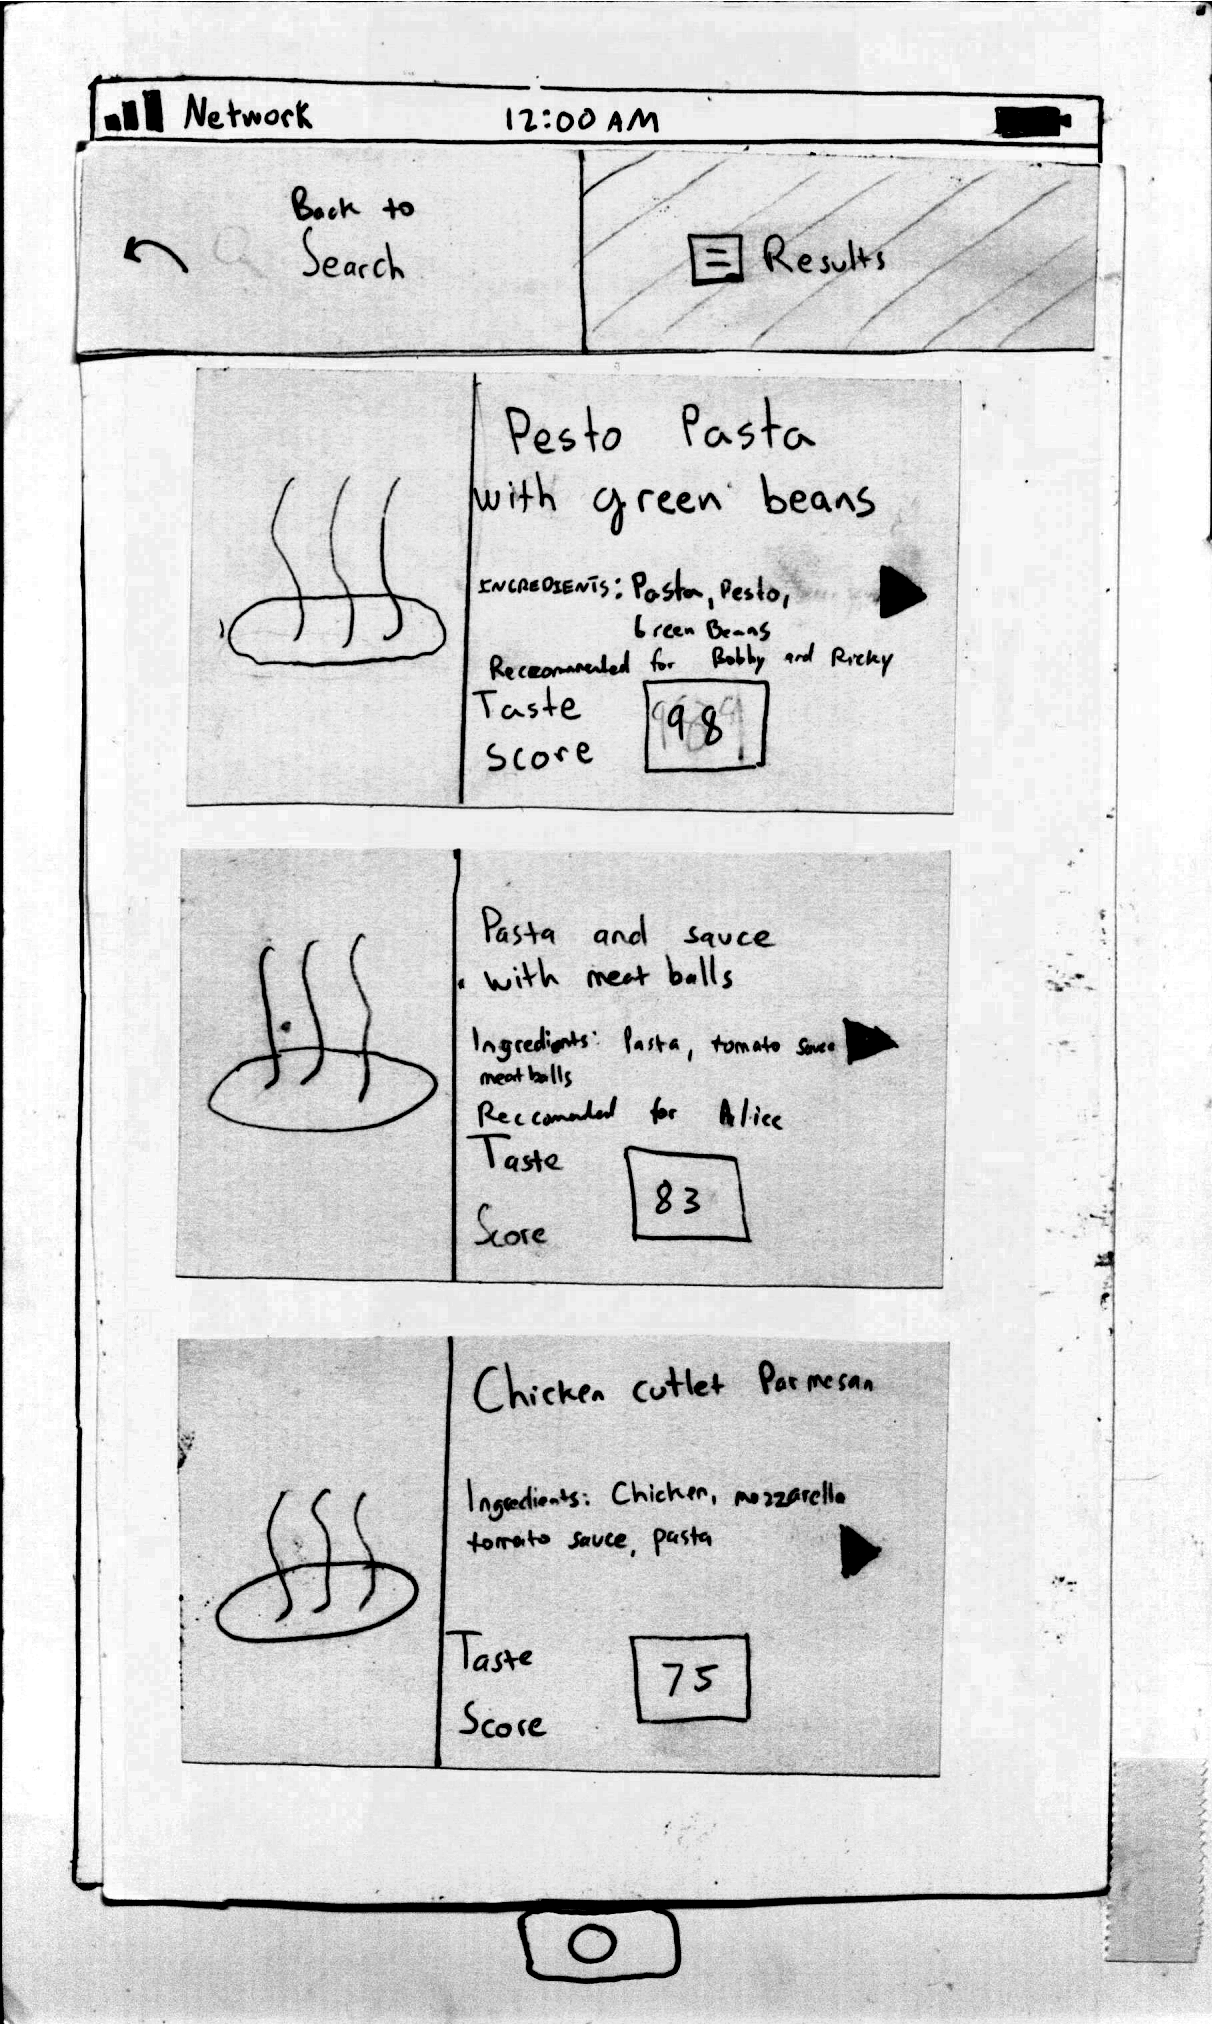 Network 12:00 AM
Back to
Search
Results
Pesto Pasta
with green beans
INGREDIENTS: Pasta, Pesto,
Green Beans
Reccommended for Bobby and Ricky
Taste
score
98
Pasta and sauce
with meat balls
Ingredients: Pasta, tomato sauce
meatballs
Reccomended for Alice
Taste
Score
83
Chicken cutlet Parmesan
Ingredients: Chicken, mozzarella
tomato sauce, pasta
Taste
Score
75